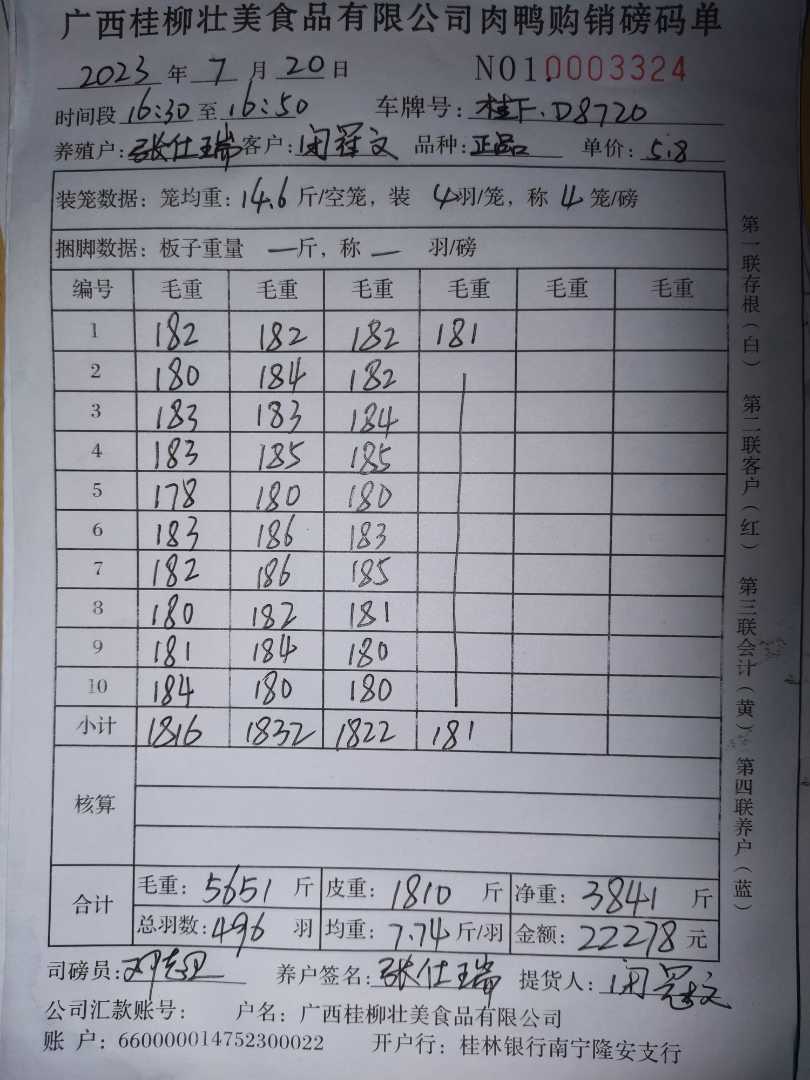 广西桂柳壮美食品有限公司肉鸭购销磅码单
2023 年 7 月 20 日 NO1.0003324
时间段 16:30 至 16:50 车牌号: 桂F.D8720
养殖户: 张仕瑞 客户: 闭冠文 品种: 正品 单价: 5.8
装笼数据: 笼均重: 14.6 斤/空笼, 装 4 羽/笼, 称 4 笼/磅
捆脚数据: 板子重量 一 斤, 称 一 羽/磅
编号 毛重 毛重 毛重 毛重 毛重 毛重
1 182 182 182 181
2 180 184 182
3 183 183 184
4 183 185 185
5 178 180 180
6 183 186 183
7 182 186 185
8 180 182 181
9 181 184 180
10 184 180 180
小计 1816 1832 1822 181
核算
合计 毛重: 5651 斤 皮重: 1810 斤 净重: 3841 斤
总羽数: 496 羽 均重: 7.74 斤/羽 金额: 22278 元
司磅员: 养户签名: 张仕瑞 提货人: 闭冠文
公司汇款账号: 户名: 广西桂柳壮美食品有限公司
账 户: 660000014752300022 开户行: 桂林银行南宁隆安支行
第一联存根(白) 第二联客户(红) 第三联会计(黄) 第四联养户(蓝)